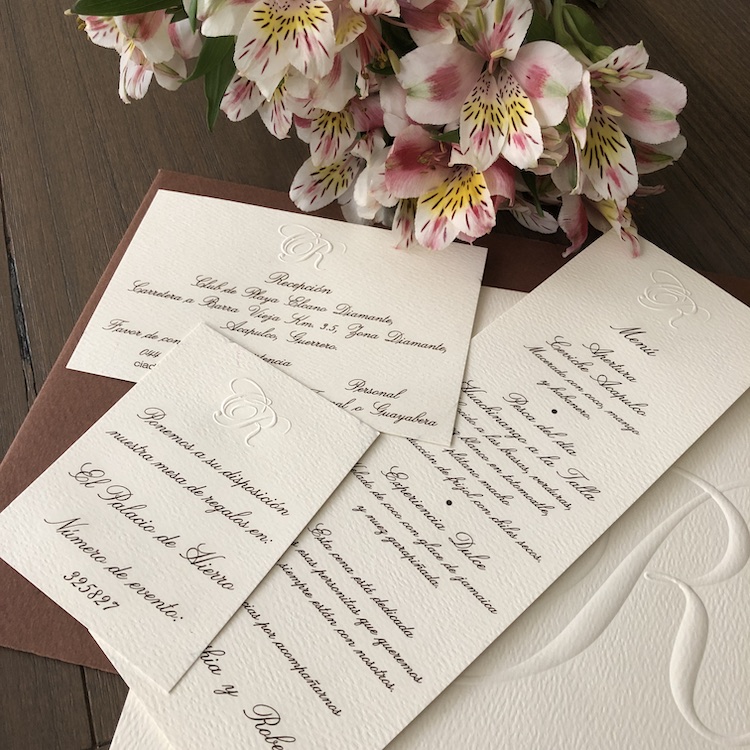 CR
Recepción
Club de Playa Elcano Diamante,
Carretera a Barra Vieja Km. 3.5, Zona Diamante,
Acapulco, Guerrero.
Favor de con
044
ciad
Personal
o Guayabera
CR
Ponemos a su disposición
nuestra mesa de regalos en:
El Palacio de Hierro
Número de evento:
325827
CR
Menú
Apertura
Cerviche Acapulco
Macerado con coco, mango
y habanero.
Pesca del día
Huachinango a la Talla
a las brasas, verduras,
blanco en totomoxtle,
plátano macho
de frijol con chiles secos.
Experiencia Dulce
de coco con glace de jamaica
y nuez garapiñada.
Esta cena está dedicada
esas personitas que queremos
siempre están con nosotros,
por acompañarnos
y Robe
R